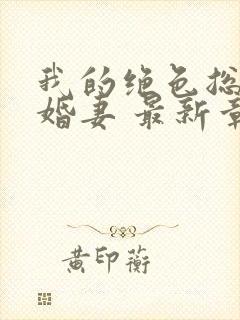 我的绝色总
婚妻 最新章
黄印蘅